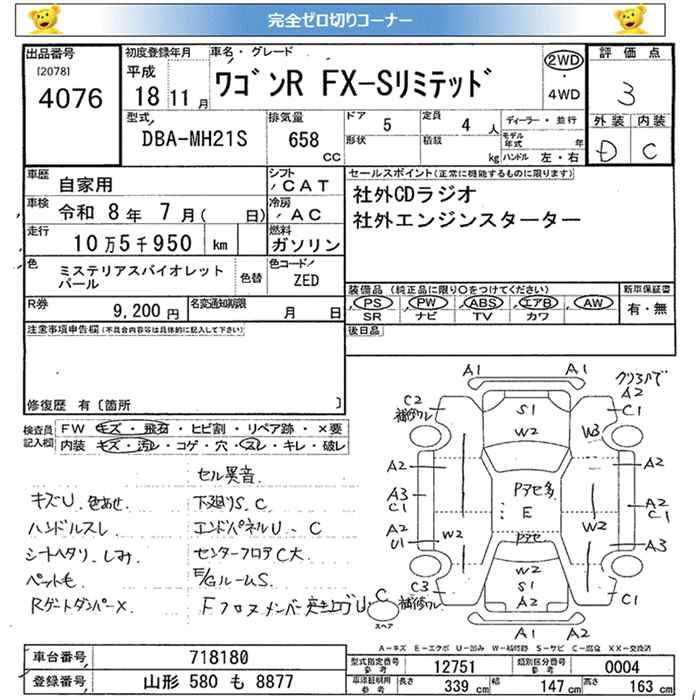 完全ゼロ切りコーナー
出品番号 初度登録年月 車名・グレード 評価点
[2078] 平成 ワゴンR FX-Sリミテッド 2WD
4076 18 11月 ・ 3
4WD
型式 排気量 ドア 5 定員 4人 ディーラー・並行 外装 内装
DBA-MH21S 658 cc 形状 積載 kg モデル年式 年 D C
ハンドル 左・右
車歴 自家用 シフト CAT セールスポイント(正常に機能するものに限ります)
車検 令和 8年 7月( 日) 冷房 AC 社外CDラジオ
走行 10万5千950 km 燃料 ガソリン 社外エンジンスターター
色 ミステリアスバイオレット 色替 色コード ZED
パール
装備品(純正品に限り○をつけてください) 新車保証書
PS PW ABS エアB AW 有・無
SR ナビ TV カワ
R券 9,200円 名変通知期限 月 日 後日品
注意事項申告欄(不具合内容等は具体的に記入して下さい)
修復歴 有〔箇所 〕
検査員記入欄 FW キズ・飛石・ヒビ割・リペア跡・×要
内装 キズ・汚レ・コゲ・穴・スレ・キレ・破レ
セル異音
キズU.色あせ 下廻りS.C
ハンドルスレ エンドパネルU-C
シートヘタリ.しみ センターフロアC大
ペット毛 E/GルームS.
RゲートダンパーX Fクロスメンバー突き上げU.C
A1 A1
クリアハゲ
C2 A2
補修ワレ C1
S1
W2 W3
A2 A2
A3 Pアセ多 A2
C1 E C1
A2 W2 Pアセ W2 A3
U1
W2
C3 S1
補修ワレ A2 C1
スペア A1 A1
A-キズ E-エクボ U-凹み W-補修跡 S-サビ C-腐食 XX-交換済
車台番号 718180 型式指定番号 参考 12751 類別区分番号 参考 0004
登録番号 山形 580 も 8877 車庫証明用 参考 長さ 339 cm 幅 147 cm 高さ 163 cm